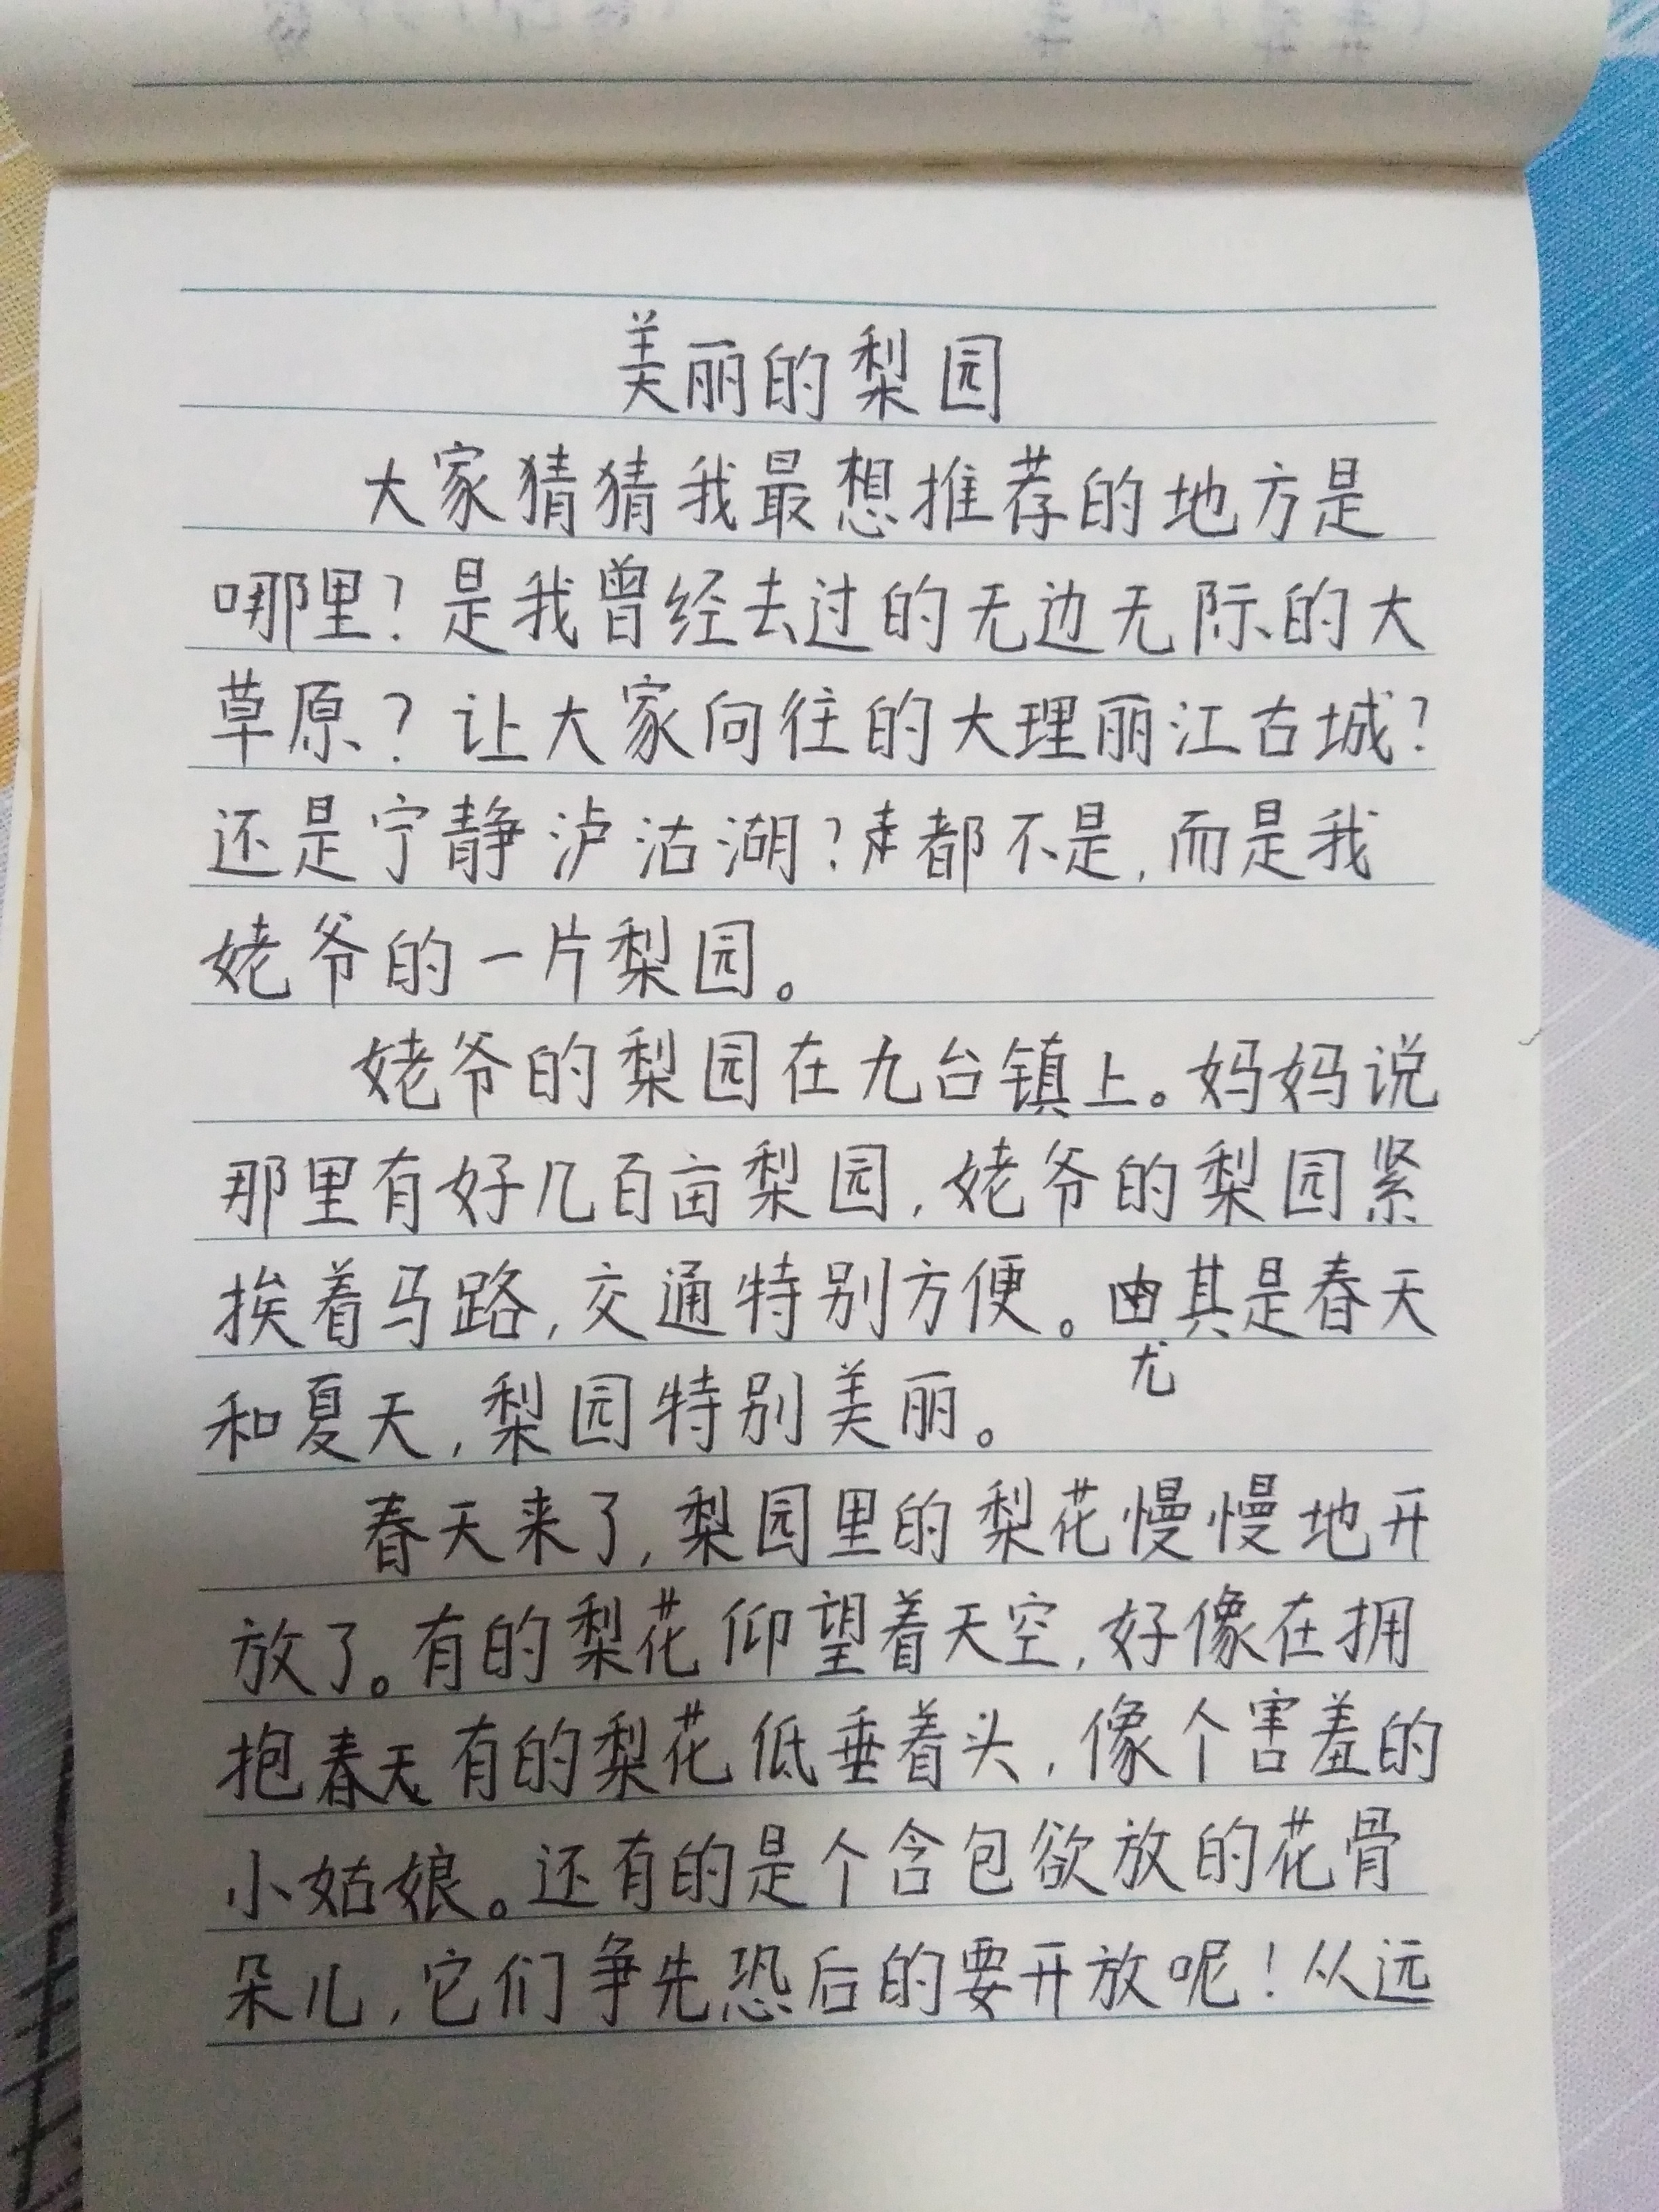 美丽的梨园
大家猜猜我最想推荐的地方是
哪里？是我曾经去过的无边无际的大
草原？让大家向往的大理丽江古城？
还是宁静泸沽湖？都不是，而是我
姥爷的一片梨园。
姥爷的梨园在九台镇上。妈妈说
那里有好几百亩梨园，姥爷的梨园紧
挨着马路，交通特别方便。由其是春天
尤
和夏天，梨园特别美丽。
春天来了，梨园里的梨花慢慢地开
放了。有的梨花仰望着天空，好像在拥
抱春天有的梨花低垂着头，像个害羞的
小姑娘。还有的是个含包欲放的花骨
朵儿，它们争先恐后的要开放呢！从远